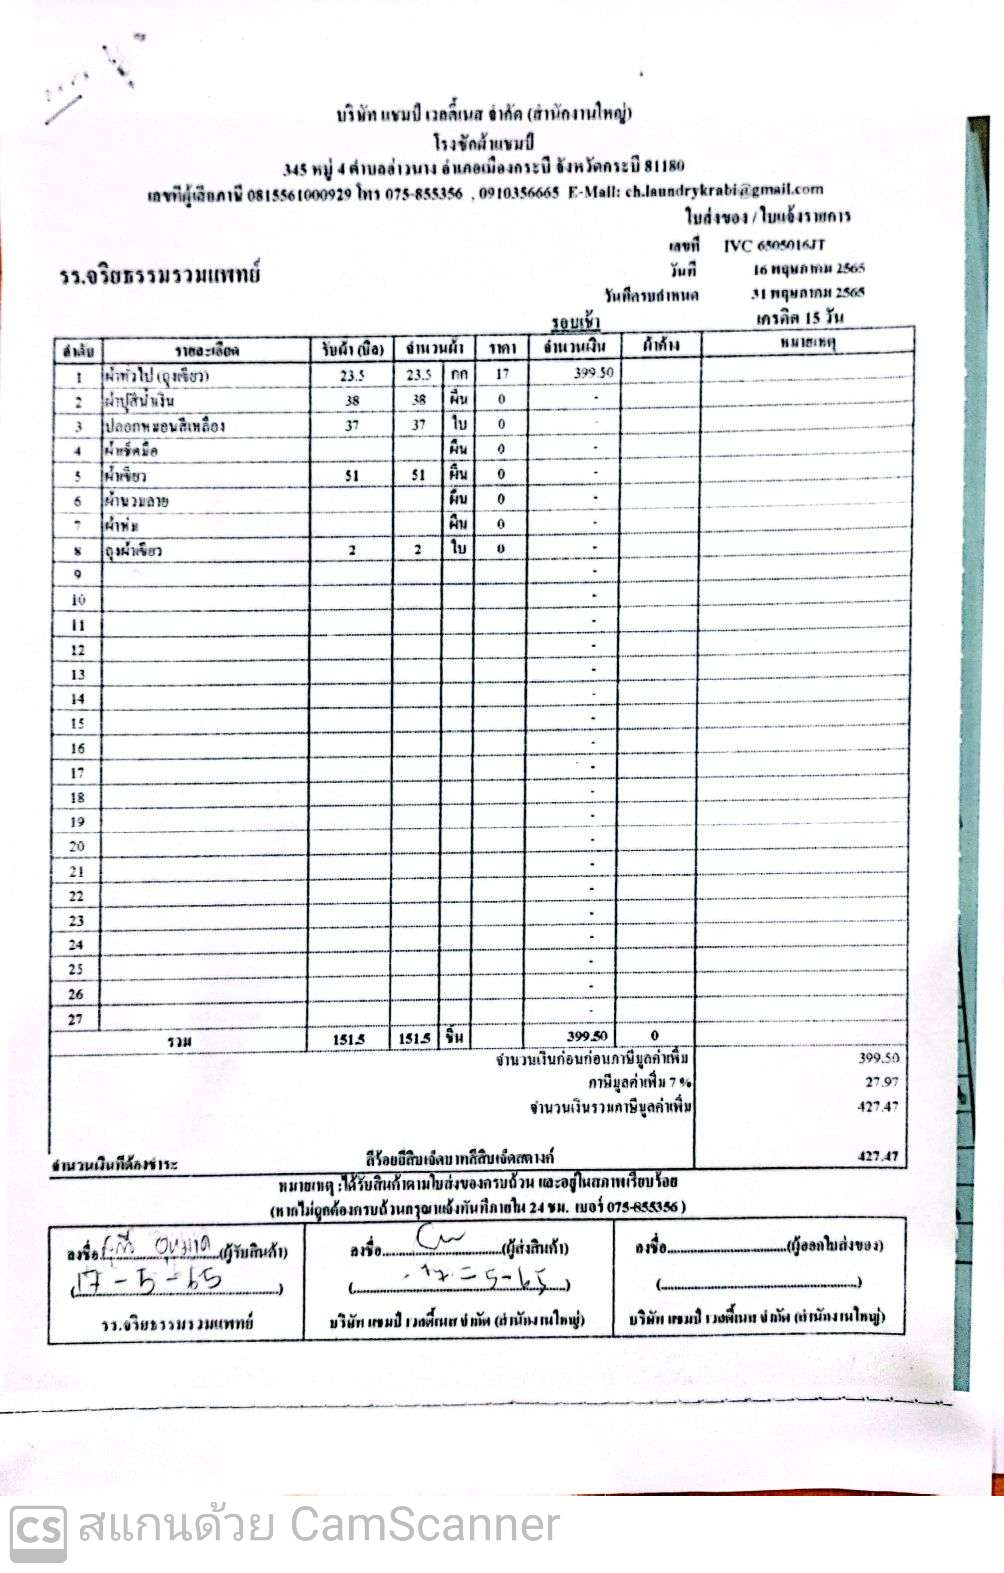 บริษัท แชมป์ เวลตี้เนส จำกัด (สำนักงานใหญ่)
โรงซักผ้าแชมป์
345 หมู่ 4 ตำบลอ่าวนาง อำเภอเมืองกระบี่ จังหวัดกระบี่ 81180
เลขที่ผู้เสียภาษี 0815561000929 โทร 075-855356 , 0910356665 E-Mail: ch.laundrykrabi@gmail.com
ใบส่งของ / ใบแจ้งรายการ
เลขที่ IVC 6505016JT
รร.จริยธรรมรวมแพทย์ วันที่ 16 พฤษภาคม 2565
วันที่ครบกำหนด 31 พฤษภาคม 2565
รอบเช้า เครดิต 15 วัน
ลำดับ รายละเอียด รับผ้า (บิล) จำนวนผ้า ราคา จำนวนเงิน ผ้าค้าง หมายเหตุ
1 ผ้าทั่วไป (ถุงเขียว) 23.5 23.5 กก 17 399.50
2 ผ้าปูสีน้ำเงิน 38 38 ผืน 0 -
3 ปลอกหมอนสีเหลือง 37 37 ใบ 0 -
4 ผ้าเช็ดมือ ผืน 0 -
5 ผ้าเขียว 51 51 ผืน 0 -
6 ผ้านวมลาย ผืน 0 -
7 ผ้าห่ม ผืน 0 -
8 ถุงผ้าเขียว 2 2 ใบ 0 -
9 -
10 -
11 -
12 -
13 -
14 -
15 -
16 -
17 -
18 -
19 -
20 -
21 -
22 -
23 -
24 -
25 -
26 -
27 -
รวม 151.5 151.5 ชิ้น 399.50 0
จำนวนเงินก่อนก่อนภาษีมูลค่าเพิ่ม 399.50
ภาษีมูลค่าเพิ่ม 7 % 27.97
จำนวนเงินรวมภาษีมูลค่าเพิ่ม 427.47
จำนวนเงินที่ต้องชำระ สี่ร้อยยี่สิบเจ็ดบาทสี่สิบเจ็ดสตางค์ 427.47
หมายเหตุ :ได้รับสินค้าตามใบส่งของครบถ้วน และอยู่ในสภาพเรียบร้อย
(หากไม่ถูกต้องครบถ้วนกรุณาแจ้งทันทีภายใน 24 ชม. เบอร์ 075-855356 )
ลงชื่อ (ผู้รับสินค้า) ลงชื่อ (ผู้ส่งสินค้า) ลงชื่อ (ผู้ออกใบส่งของ)
(17-5-65) (17-5-65) ( )
รร.จริยธรรมรวมแพทย์ บริษัท แชมป์ เวลตี้เนส จำกัด (สำนักงานใหญ่) บริษัท แชมป์ เวลตี้เนส จำกัด (สำนักงานใหญ่)
CS สแกนด้วย CamScanner